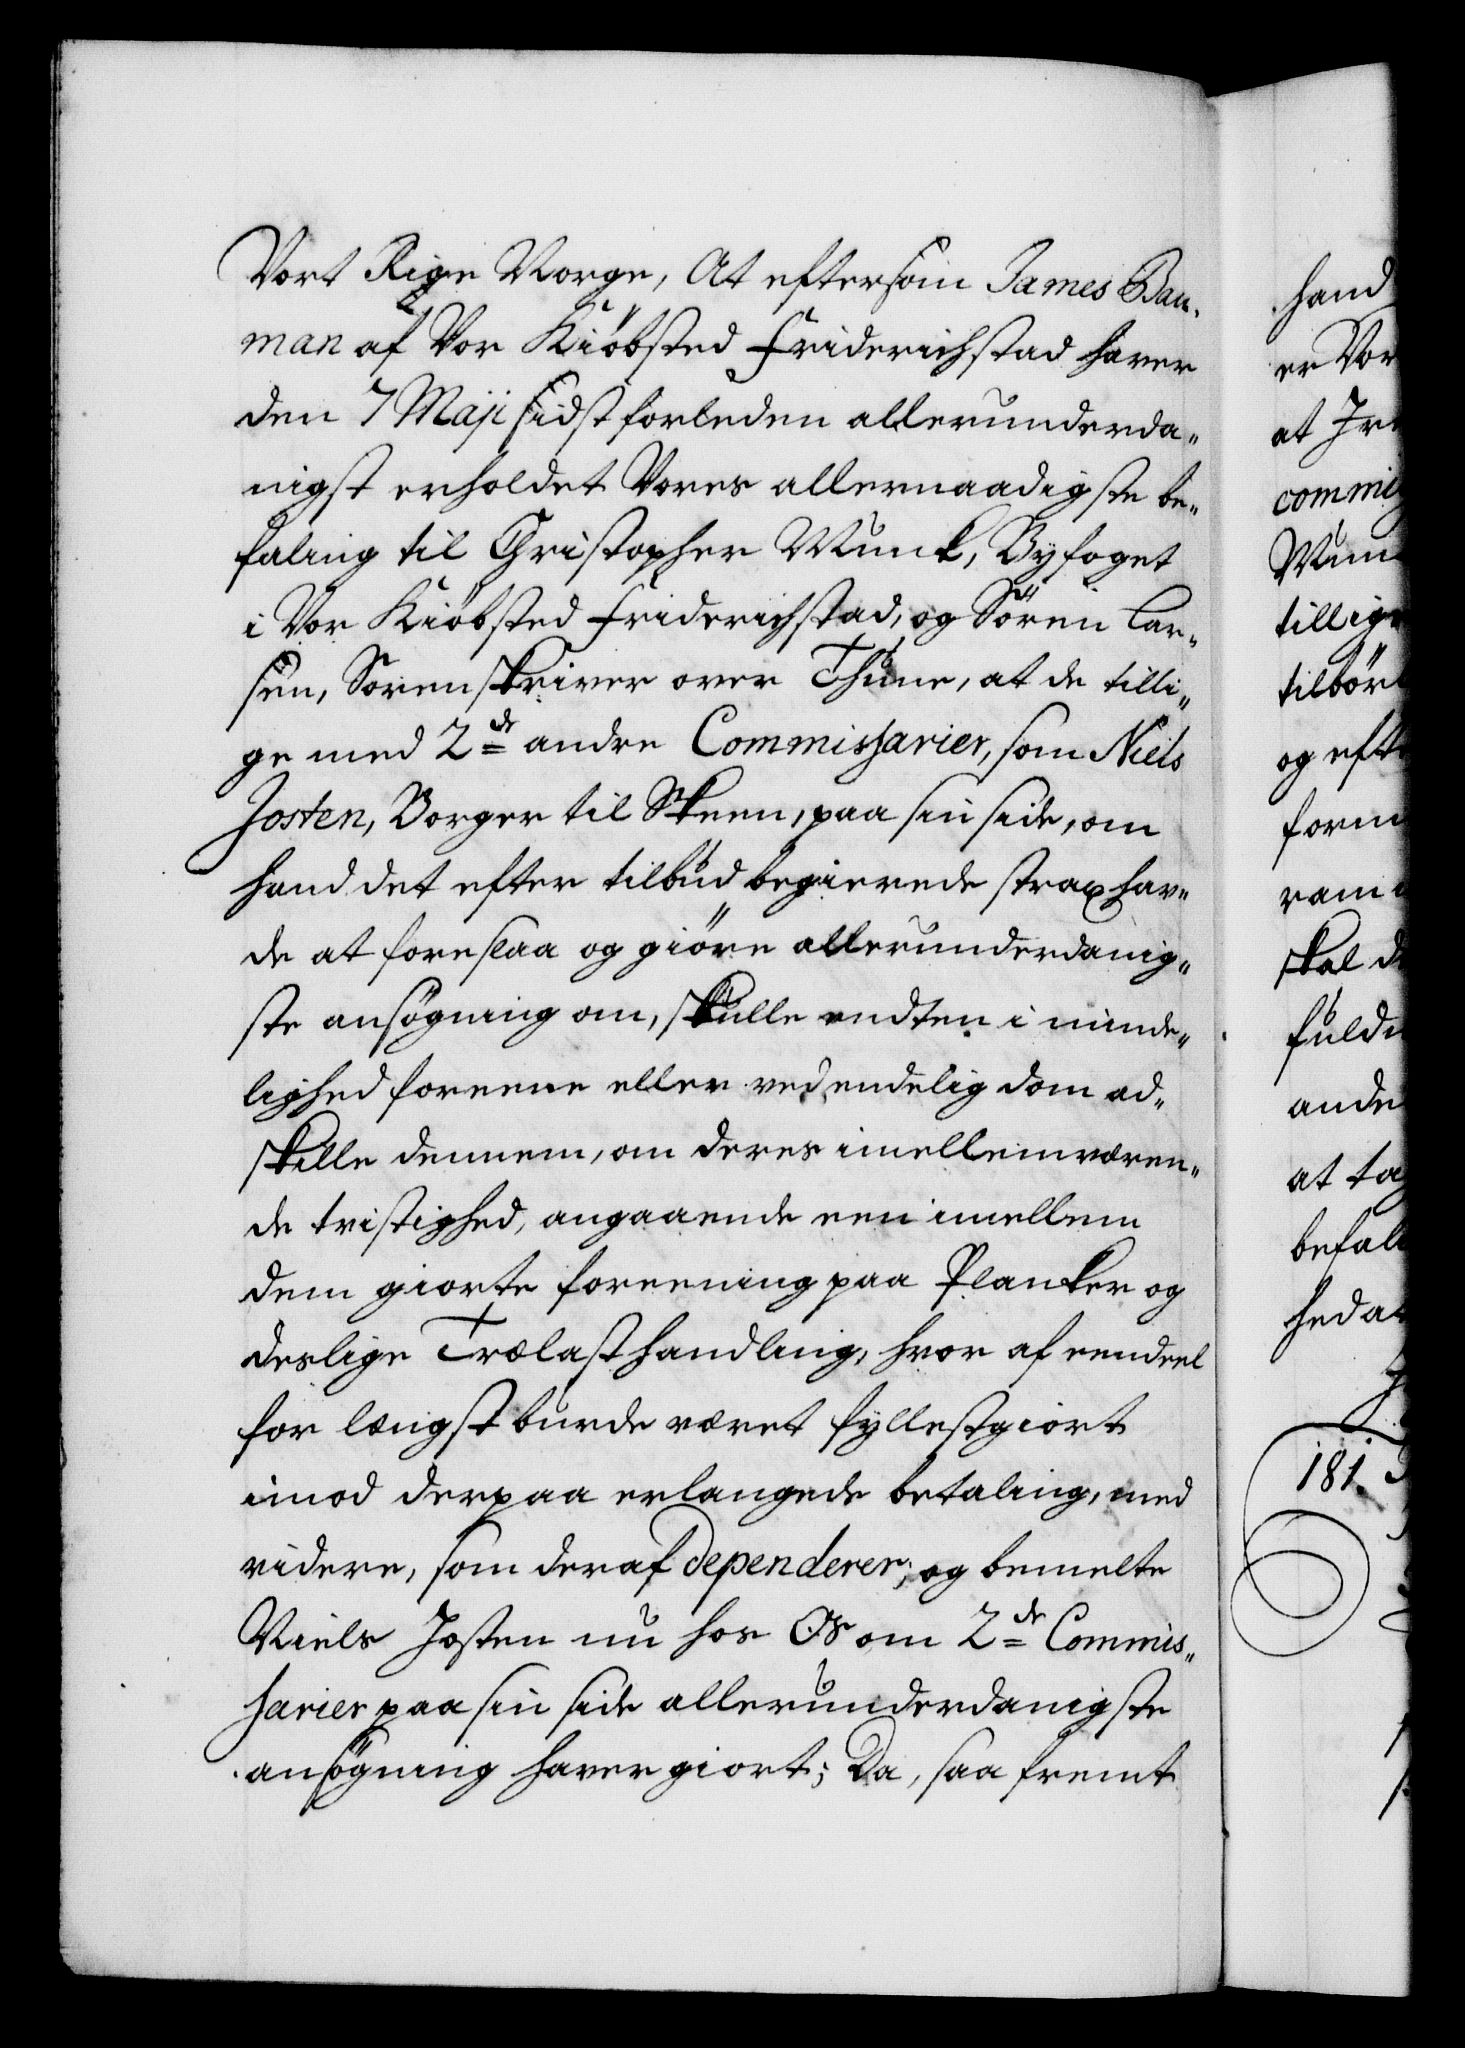 Vort Rige Norge, At eftersom James Bau-
man af Vor Kiöbsted Friderichstad haver
den 7 Maji sidst forleden allerunderda„
nigst erholdet Vores allernaadigste be„
faling til Christopher Munk, Byfoget
i Vor Kiöbsted Friderichstad, og Sören Lar„
sen, Sorenskriver over Thune, at de tilli„
ge med 2de andre Commissarier, som Niels
Josten, Borger til Skeen, paa sin side, om
hand det efter tilbud begierede strax hav„
de at foreslaa og giöre allerunderdanig„
ste ansögning om, skulle endten i minde„
lighed foreene eller ved endelig dom ad„
skille dennem, om deres imellemværen„
de tvistighed, angaaende een imellem
dem giorte foreening paa Planker og
deslige Trælasthandling, hvor af eendeel
for længst burde været fyllestgiort
imod derpaa erlangede betaling, med
videre, som deraf dependerer; og bemelte
Niels Josten nu hos Os om 2de Commis„
sarier paa sin side allerunderdanigste
ansögning haver giort; Da, saa fremt
hand
er Vor
at
commi
Mun
tillige
tilbör
og eft
form
ram
skal d
fuld
ande
at ta
befal
hed at
181.